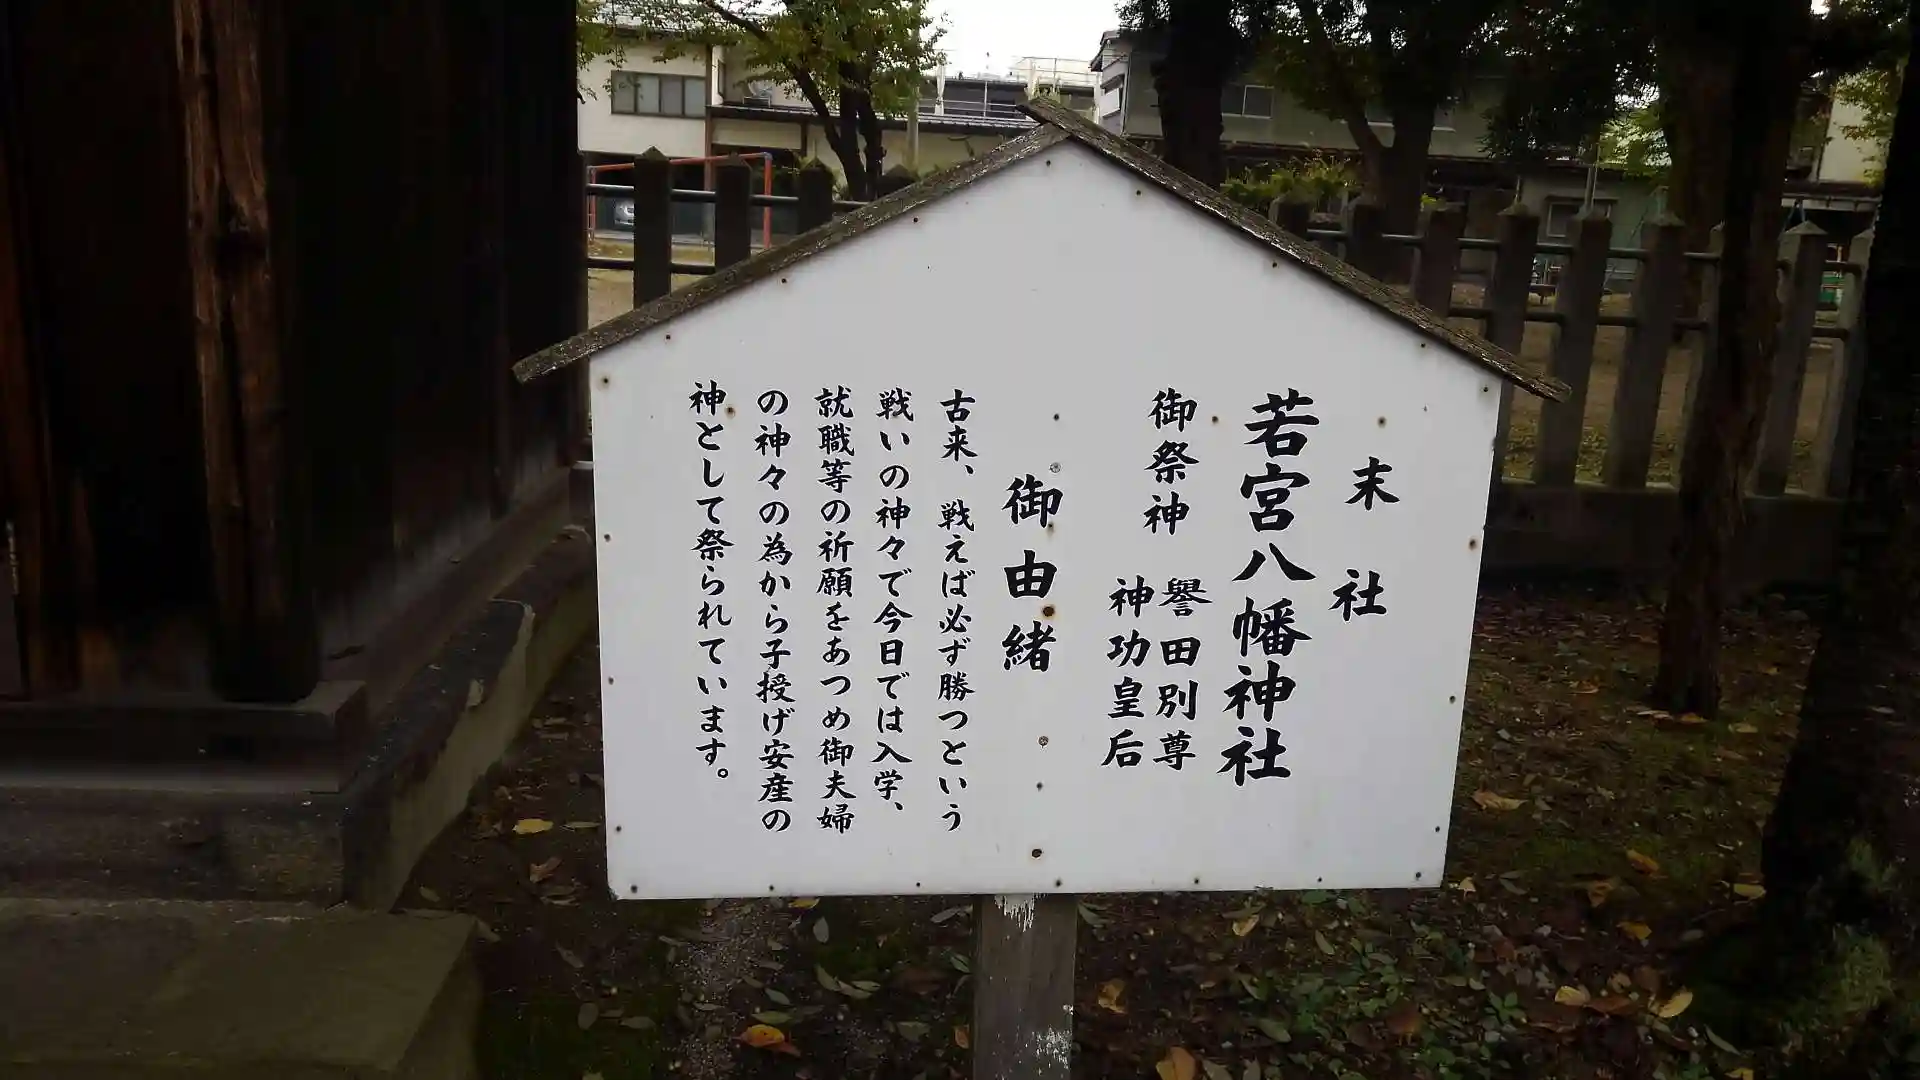 末社
若宮八幡神社
御祭神 譽田別尊
神功皇后
御由緒
古来、戦えば必ず勝つという
戦いの神々で今日では入学、
就職等の祈願をあつめ御夫婦
の神々の為から子授げ安産の
神として祭られています。